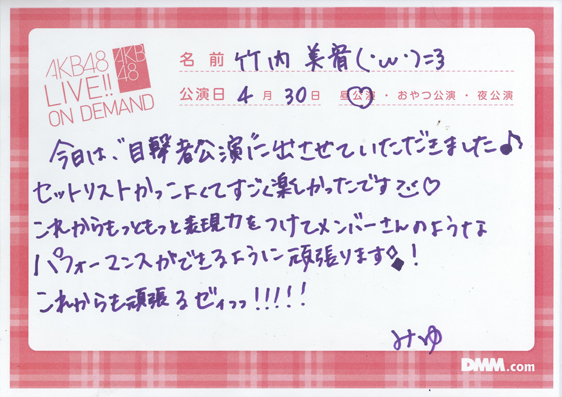 AKB48
LIVE!!
ON DEMAND
AKB
48
名前 竹内美宥(･ω･)=3
公演日 4月30日 昼公演・おやつ公演・夜公演
今日は、"目撃者公演"に出させていただきました♪
セットリストかっこよくてすごく楽しかったです♡
これからもっともっと表現力をつけてメンバーさんのような
パフォーマンスができるように頑張ります!
これからも頑張るゼィっっ!!!!!
みゆ
DMM.com